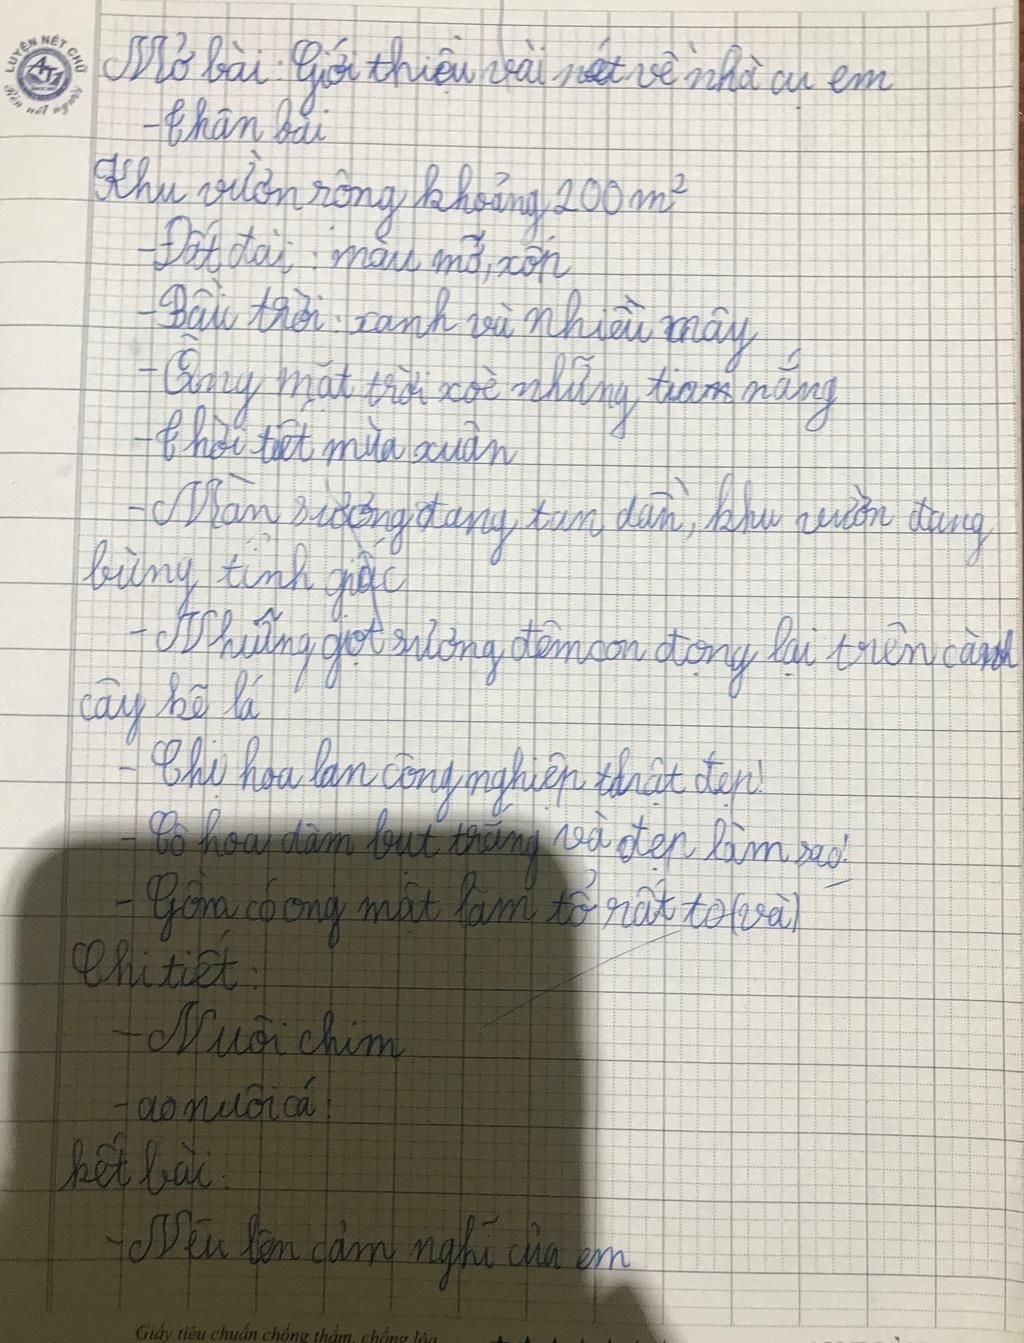 LUYỆN NÉT CHỮ
AT1
Rèn nết người
Mở bài: Gới thiệu vài nét về nhà cụ em
- Thân bài
Khu vườn rộng khoảng 200m²
- Đất đai: màu mỡ, xốp
- Bầu trời: xanh và nhiều mây
- Ông mặt trời xoè những tia nắng
- Thời tiết mùa xuân
- Màn sương đang tan dần, khu vườn đang
bừng tỉnh giấc
- Những giọt sương đêm còn đọng lại trên cành
cây kẽ lá
- Chị hoa lan công nghiệp thật đẹp!
- Cô hoa dâm bụt trắng và đẹp làm sao!
- Gồm có ong mật làm tổ rất to (và)
Chi tiết:
- Nuôi chim
- ao nuôi cá!
kết bài:
- Nêu lên cảm nghĩ của em
Giấy tiêu chuẩn chống thấm, chống lóa